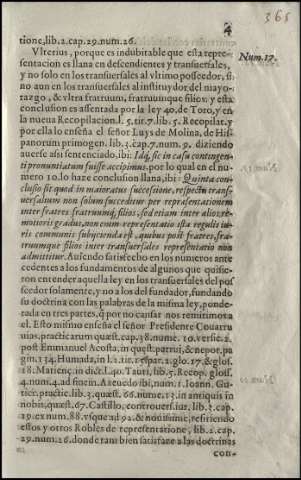 365
4
tione, lib. 2. cap. 29. num. 26.
Vlterius, porque es indubitable que esta repre-
sentacion es llana en descendientes y transuersales,
y no solo en los transuersales al vltimo posseedor, si
no aun en los transuersales al instituydor del mayo-
razgo, & vltra fratrum, fratruumque filios: y esta
conclusion es assentada por la ley 40. de Toro, y en
la nueua Recopilacion l. 5. tit. 7. lib. 5. Recopilat. y
por ella lo enseña el señor Luys de Molina, de His-
panorum primogen. lib. 3. cap. 7. num. 9. diziendo
auerse assi sentenciado, ibi: Idq; sic in casu contingen-
ti pronuntiatum fuisse accipimus, por lo qual en el nu-
mero 10. lo haze conclusion llana, ibi: Quinta con-
clusio sit quod in maioratus successione, respectu trans-
uersalium non solum succeditur per repræsentationem
inter fratres fratruumq; filios, sed etiam inter alios re-
motioris gradus, non enim repræsentatio ista regulis iu-
ris communis subijcienda est, quibus post fratres, fra-
truumque filios inter transuersales repræsentatio non
admittitur. Auiendo satisfecho en los numeros ante
cedentes a los fundamentos de algunos que quisie-
ron entender aquella ley en los transuersales del pos
seedor solamente, y no a los del fundador, fundando
su doctrina con las palabras de la misma ley, ponde-
rada en tres partes, q̃ por no cansar nos remitimos a
el. Esto mismo enseña el señor Presidente Couarru
uias, practicarum quæst. cap. 38. nume. 10. versic. 2.
post Emmanuel Acosta, in quæst. patrui, & nepot. pa
gin. 134. Humada, in l. 2. tit. 15. par. 2. glo. 17. & glos.
18. Matienç. in dict. l. 40. Tauri, lib. 5. Recop. gloss.
4. num. 4. ad finem. Azeuedo ibi, num. 1. Ioann. Gu-
tier. practic. lib. 3. quæst. 66. nume. 13. in antiquis in
nobis, quæst. 67. Castillo, controuersias, lib. 3. cap.
19. ex num. 88. vsque ad 92. & nouissime, refiriendo
essos y otros Robles de representatione, lib. 2. cap.
29. num. 26. donde tambien satisfaze a las doctrinas
con-
Num. 17.